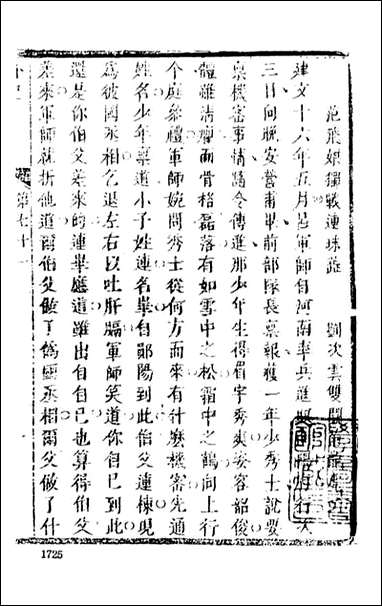 范飛娘獨戰連珠蕊 劉次雲雙鬭
建文十六年五月呂軍師自河南率兵進行次
三日向晚安營甫畢前部隊長稟報獲一年少秀士說要
稟機密事情請令傳進那少年生得眉宇秀爽姿容韶俊
體雖清癯而骨格磊落有如雪中之松霜中之鶴向上行
个庭參禮軍師婉問秀士從何方而來有什麽機密先通
姓名少年稟道小子姓連名華自鄖陽到此伯父連棟現
為彼國丞相乞退左右以吐肝膈軍師笑道你自已到此
還是你伯父差來的連華庭道雖出自自已也算得伯父
差來軍師就折他道爾伯父做了僞國丞相爾父做了什
第七十一
1725